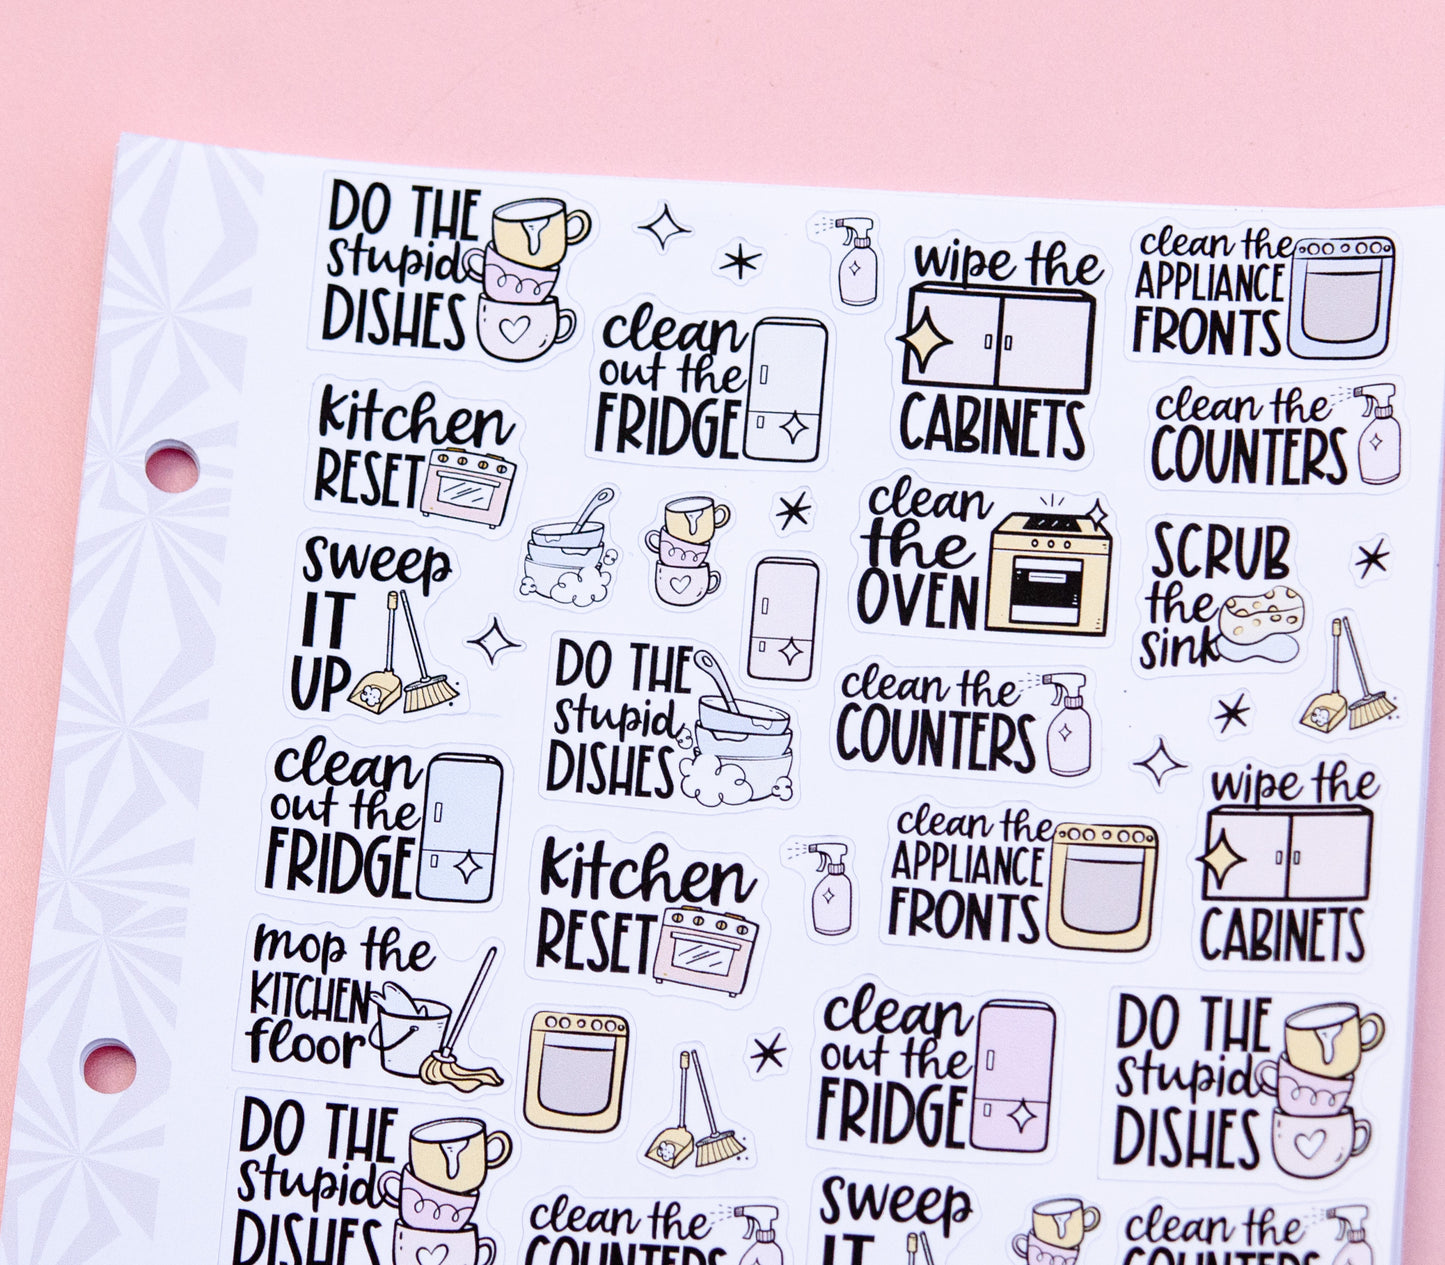 DO THE
stupid
DISHES
clean
out the
FRIDGE
wipe the
CABINETS
clean the
APPLIANCE
FRONTS
kitchen
RESET
clean the
COUNTERS
clean
the
OVEN
SCRUB
the
sink
sweep
IT
UP
DO THE
stupid
DISHES
clean the
COUNTERS
clean
out the
FRIDGE
wipe the
CABINETS
kitchen
RESET
clean the
APPLIANCE
FRONTS
mop the
KITCHEN
floor
clean
out the
FRIDGE
DO THE
stupid
DISHES
DO THE
stupid
DISHES
clean the
COUNTERS
sweep
IT
clean the
COUNTERS